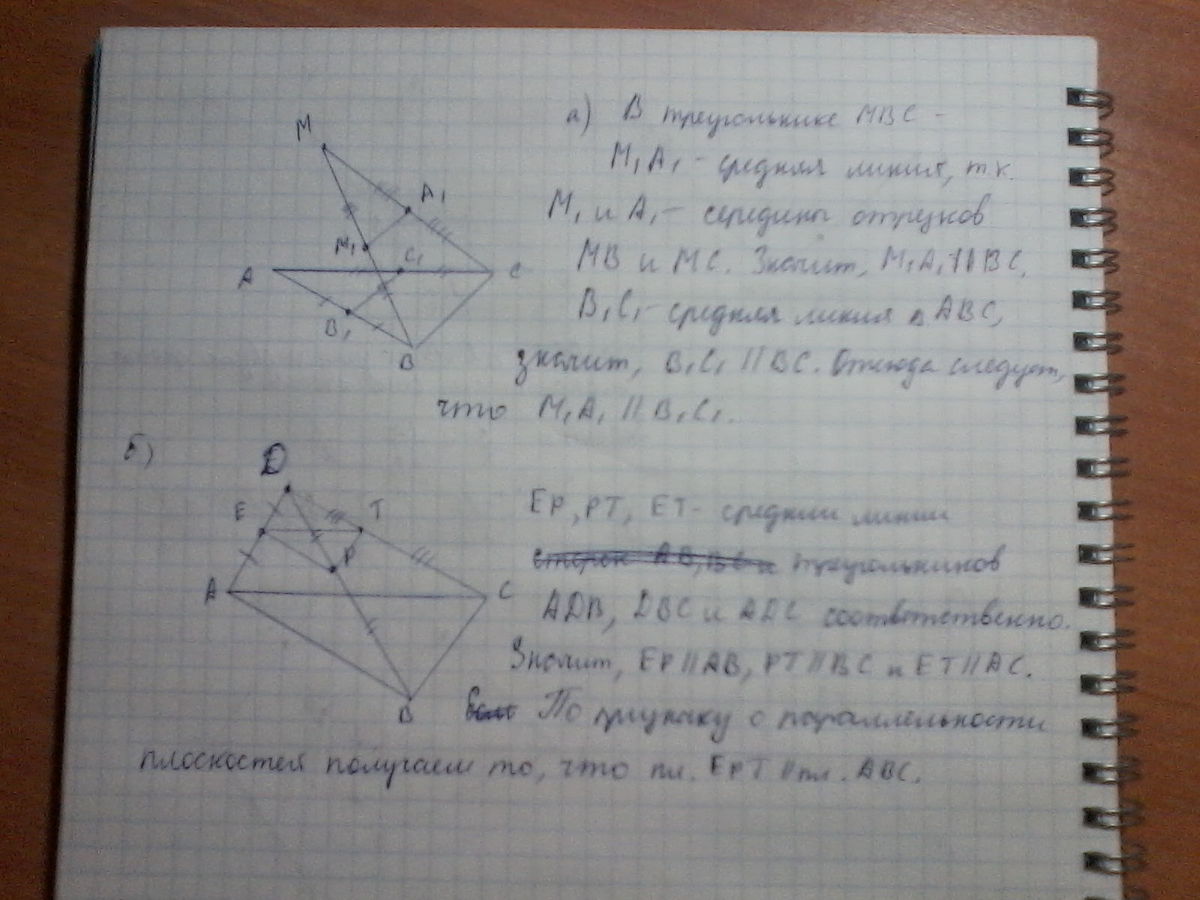 а) В треугольнике MBC -
M₁A₁ - средняя линия, т.к.
M₁ и A₁ - середины отрезков
MB и MC. Значит, M₁A₁ || BC,
B₁C₁ - средняя линия в ABC,
значит, B₁C₁ || BC. Отсюда следует,
что M₁A₁ || B₁C₁.
M
A₁
M₁
C₁
A
C
B₁
B
б)
D
E
T
P
A
C
B
EP, PT, ET - средние линии
сторон AB, BC и треугольников
ADB, DBC и ADC соответственно.
Значит, EP || AB, PT || BC и ET || AC.
По признаку о параллельности
плоскостей получаем то, что пл. EPT || пл. ABC.